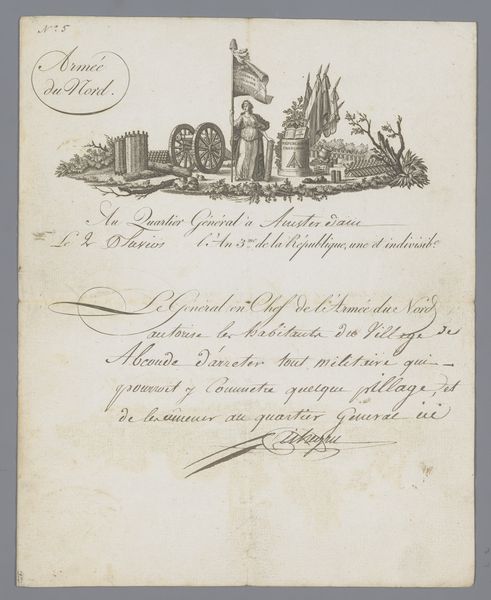 N.º 5
Armée
du Nord.
RÉPUBLIQUE
FRANÇAISE
Au Quartier Général à Amsterdam
Le 2 Pluviôs l'An 3.me de la République, une et indivisib.e
Le Général en Chef de l'Armée du Nord
autorise les habitants du Village de
Abcoude d'arreter tout militaire qui
pourroit y Commetre quelque pillage, et
de les amener au quartier General ici